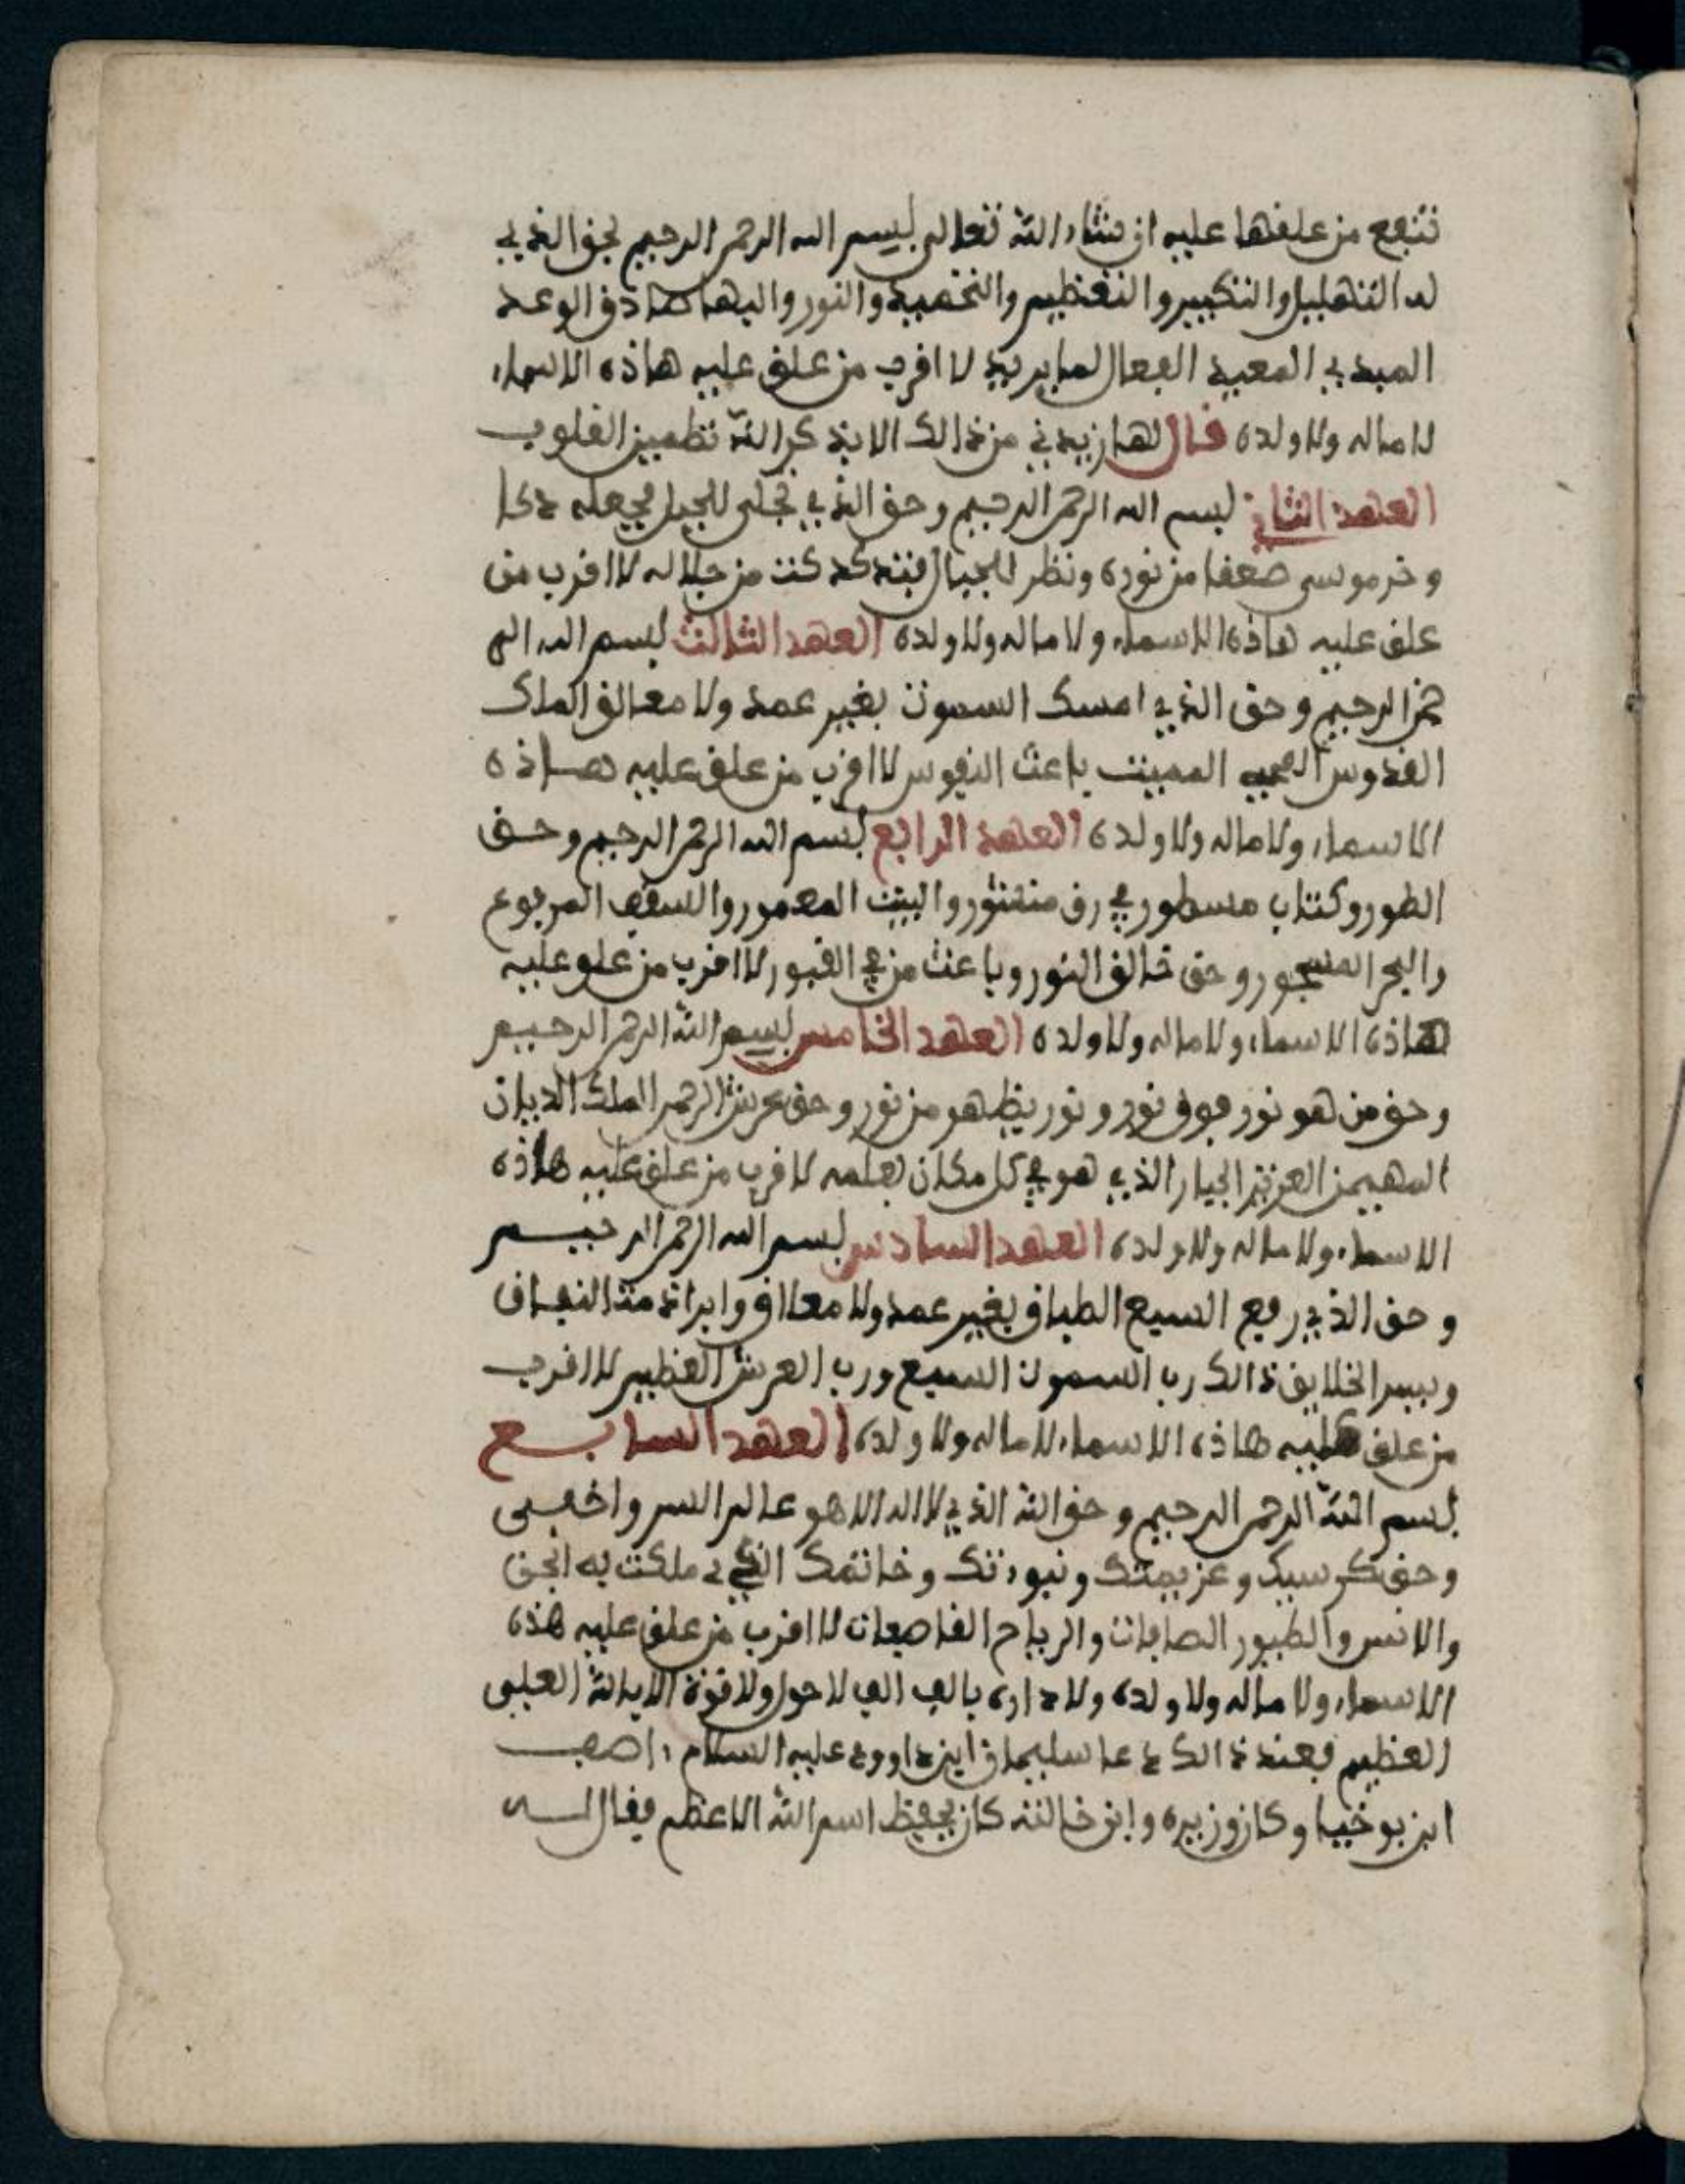 تنفع من علفها عليه ان شاء الله تعالى بسم الله الرحمن الرحيم بحق الذي
له التهليل والتكبير والتعظيم والتحميد والنور والبهاء صادق الوعد
المبدي المعيد الفعال لما يريد لا اقرب من علق عليه هاذه الاسماء
لا ماله ولا ولده فال لها زيديني من ذالك الا بذكر الله تطمين القلوب
العهد الثاني بسم الله الرحمن الرحيم وحق الذي تجلى للجبل فجعله دكا
وخر موسى صعفا من نوره ونظر للجبال فتدكدكت من جلاله لا اقرب من
علق عليه هاذه الاسماء ولا ماله ولا ولده العهد الثالث بسم الله الر
حمن الرحيم وحق الذي امسك السموت بغير عمد ولا معالق الملك
القدوس المحيي المميت باعث النفوس لا اقرب من علق عليه هاذه
الاسماء ولا ماله ولا ولده العهد الرابع بسم الله الرحمن الرحيم وحق
الطور وكتاب مسطور في رق منشور والبيت المعمور والسقف المرفوع
والبحر المسجور وحق خالق النور وباعث من في القبور لا اقرب من علق عليه
هاذه الاسماء ولا ماله ولا ولده العهد الخامس بسم الله الرحمن الرحيم
وحق من هو نور فوق نور ونور يظهر من نور وحق عرش الرحمن الملك الديان
المهيمن العزيز الجبار الذي هو في كل مكان بعلمه لا قرب من علق عليه هاذه
الاسماء ولا ماله ولا ولده العهد السادس بسم الله الرحمن الرحيم
وحق الذي رفع السبع الطباق بغير عمد ولا معلاق وابراته من النفاق
ويسر الخلايق ذالك رب السموت السبع ورب العرش العظيم لا اقرب
من علق عليه هاذه الاسماء لا ماله ولا ولده العهد السابع
بسم الله الرحمن الرحيم وحق الله الذي لا اله الا هو عالم السر واخفى
وحق كرسيك وعزيمتك ونبوءتك وخاتمك الذي ملكت به الجن
والانس والطيور الصافات والرياح القاصعات لا اقرب من علق عليه هذه
الاسماء ولا ماله ولا ولده ولا داره بالف الف لا حول ولا قوة الا بالله العلي
العظيم فعند ذالك دعا سليمان ابن داوود عليه السلام اصف
ابن بوخيا وكان وزيره وابن خالته كان يحفظ اسم الله الاعظم فقال له